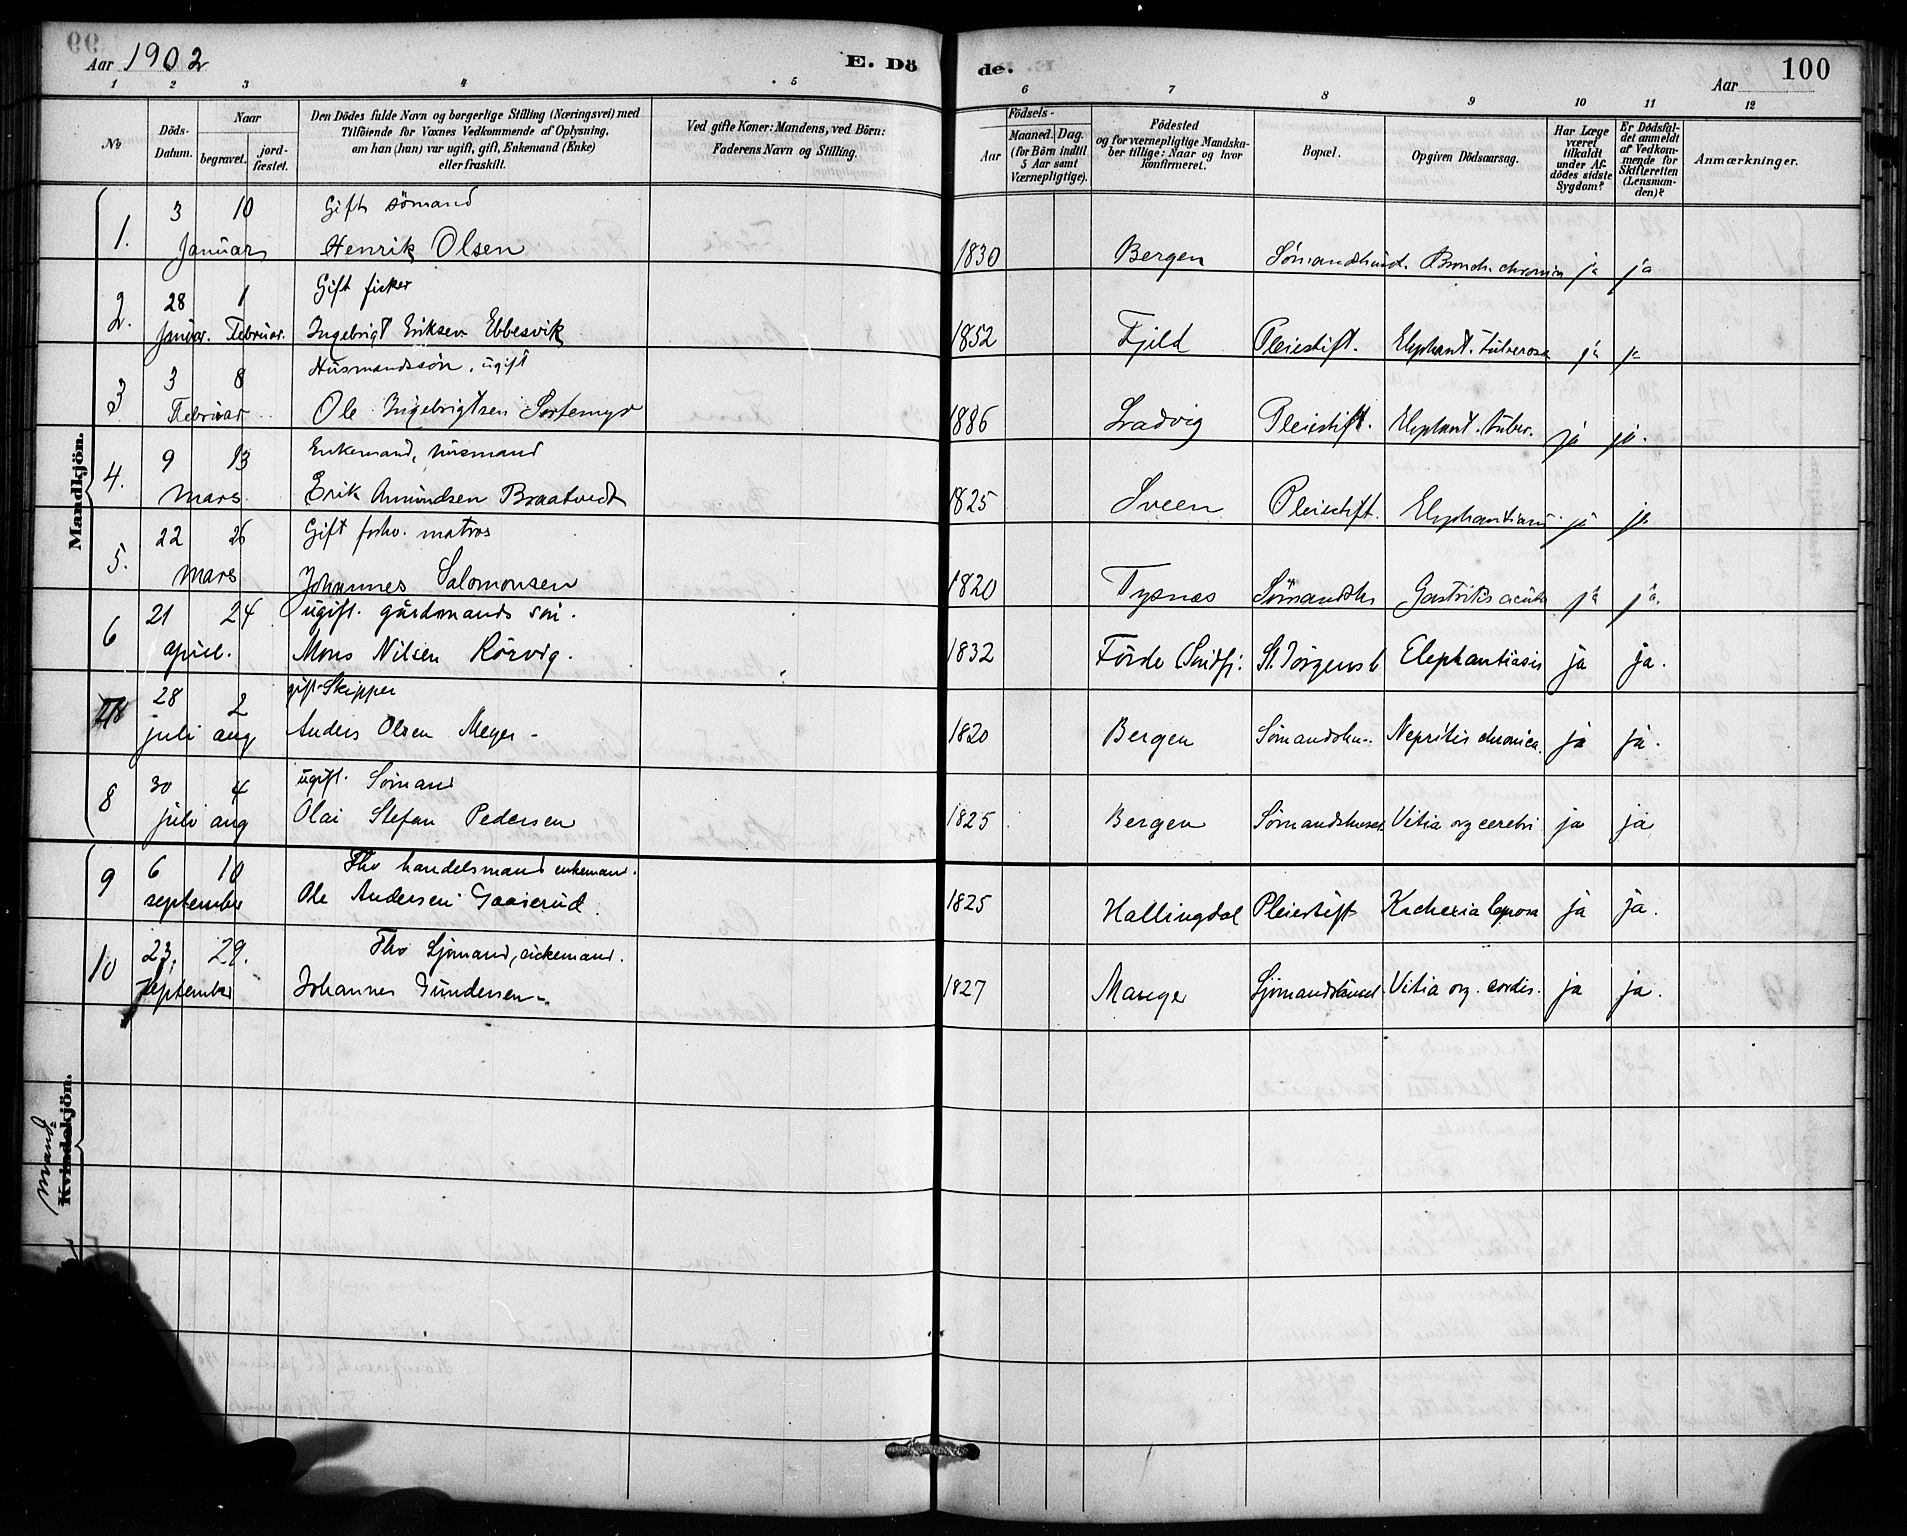 Aar 1902
E. Dö
de.
Aar
100
1 2 3 4 5 6 7 8 9 10 11 12
No
Döds-Datum.
Naar
begravet.
jord-fæstet.
Den Dödes fulde Navn og borgerlige Stilling (Næringsvei) med
Tilföiende for Voxnes Vedkommende af Oplysning,
om han (hun) var ugift, gift, Enkemand (Enke)
eller fraskilt.
Ved gifte Koner: Mandens, ved Börn:
Faderens Navn og Stilling.
Födsels-
Aar
Maaned. Dag.
(for Börn indtil
5 Aar samt
Værnepligtige).
Födested
og for værnepligtige Mandska-
ber tillige: Naar og hvor
konfirmeret.
Bopæl.
Opgiven Dödsaarsag.
Har Læge
været
tilkaldt
under Af-
dödes sidste
Sygdom?
Er Dödsfal-
det anmeldt
af Vedkom-
mende for
Skifteretten
(Lensman-
den)?
Anmærkninger.
Mandkjön.
1. 3 10 Gift sömand
Januar Henrik Olsen 1830 Bergen Sømandshuset. Bronch. chronica ja ja
2. 28 1 Gift fisker
Januar. Februar. Ingebrigt Eriksen Ebbesvik 1852 Fjeld Pleiestift. Elephant. tuberosa ja ja
3 3 8 Husmandssön, ugift
Februar Ole Ingebrigtsen Sortemyr 1886 Ladvig Pleiestift. Elephant. tuber. ja ja.
4. 9 13 Enkemand, husmand
Mars Erik Amundsen Braatvedt 1825 Sveen Pleiestift. Elephantiasis ja ja
5. 22 26 Gift forhv. matros
Mars Johannes Salomonsen 1820 Tysnes Sömandsh Gastritis acuta ja ja.
6 21 24 ugift. gårdmands sön.
april. Mons Nilsen Rörvig. 1832 Förde Söndfj. St. Jörgensh Elephantiasis ja ja.
28 2 gift Skipper
juli aug Anders Olsen Meyer - 1820 Bergen Sømandshu-. Nepritis chronica. ja ja.
8 30 4 ugift. Sømand
juli aug Olai Stefan Pedersen 1825 Bergen Sømandshuset Vitia org cerebri ja ja
9 6 10 Fhv handelsmand enkemand.
september Ole Andersen Gaaserud. 1825 Hallingdal Pleiestift Kachexia leprosa ja ja.
10 23. 29. Fhv Sjömand, enkemand.
september Johannes Gundersen - 1827 Mange Sjømandshuset. Vitia org. cordis. ja ja.
Mand-
Kvindekjön.